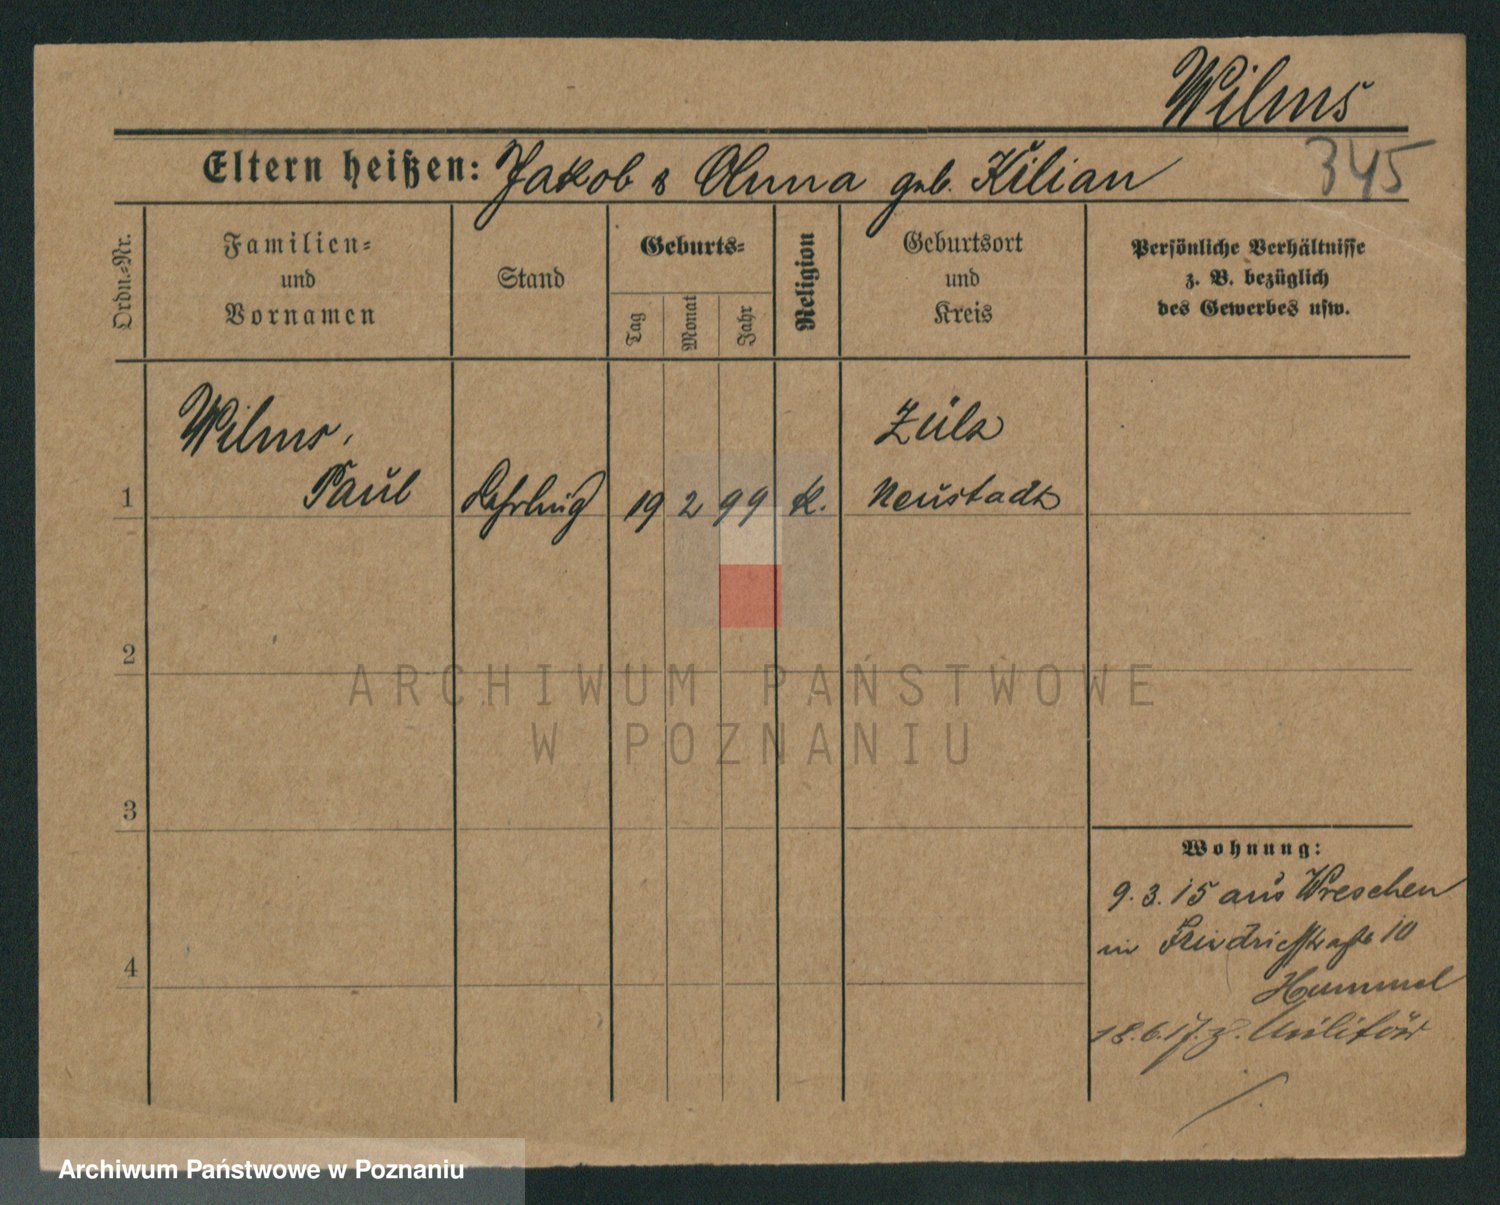 Wilms
Eltern heißen: Jakob & Anna geb. Kilian
345
Ordn.-Nr.
Familien-
und
Vornamen
Stand
Geburts-
Tag
Monat
Jahr
Religion
Geburtsort
und
Kreis
Persönliche Verhältnisse
z. B. bezüglich
des Gewerbes usw.
1
Wilms,
Paul
Lehrling
19
2
99
k.
Zülz
Neustadt
2
3
4
Wohnung:
9. 3. 15 aus Wreschen
in Friedrichstraße 10
Hummel
18. 6. 17. z. Militär
ARCHIWUM PAŃSTWOWE
W POZNANIU
Archiwum Państwowe w Poznaniu